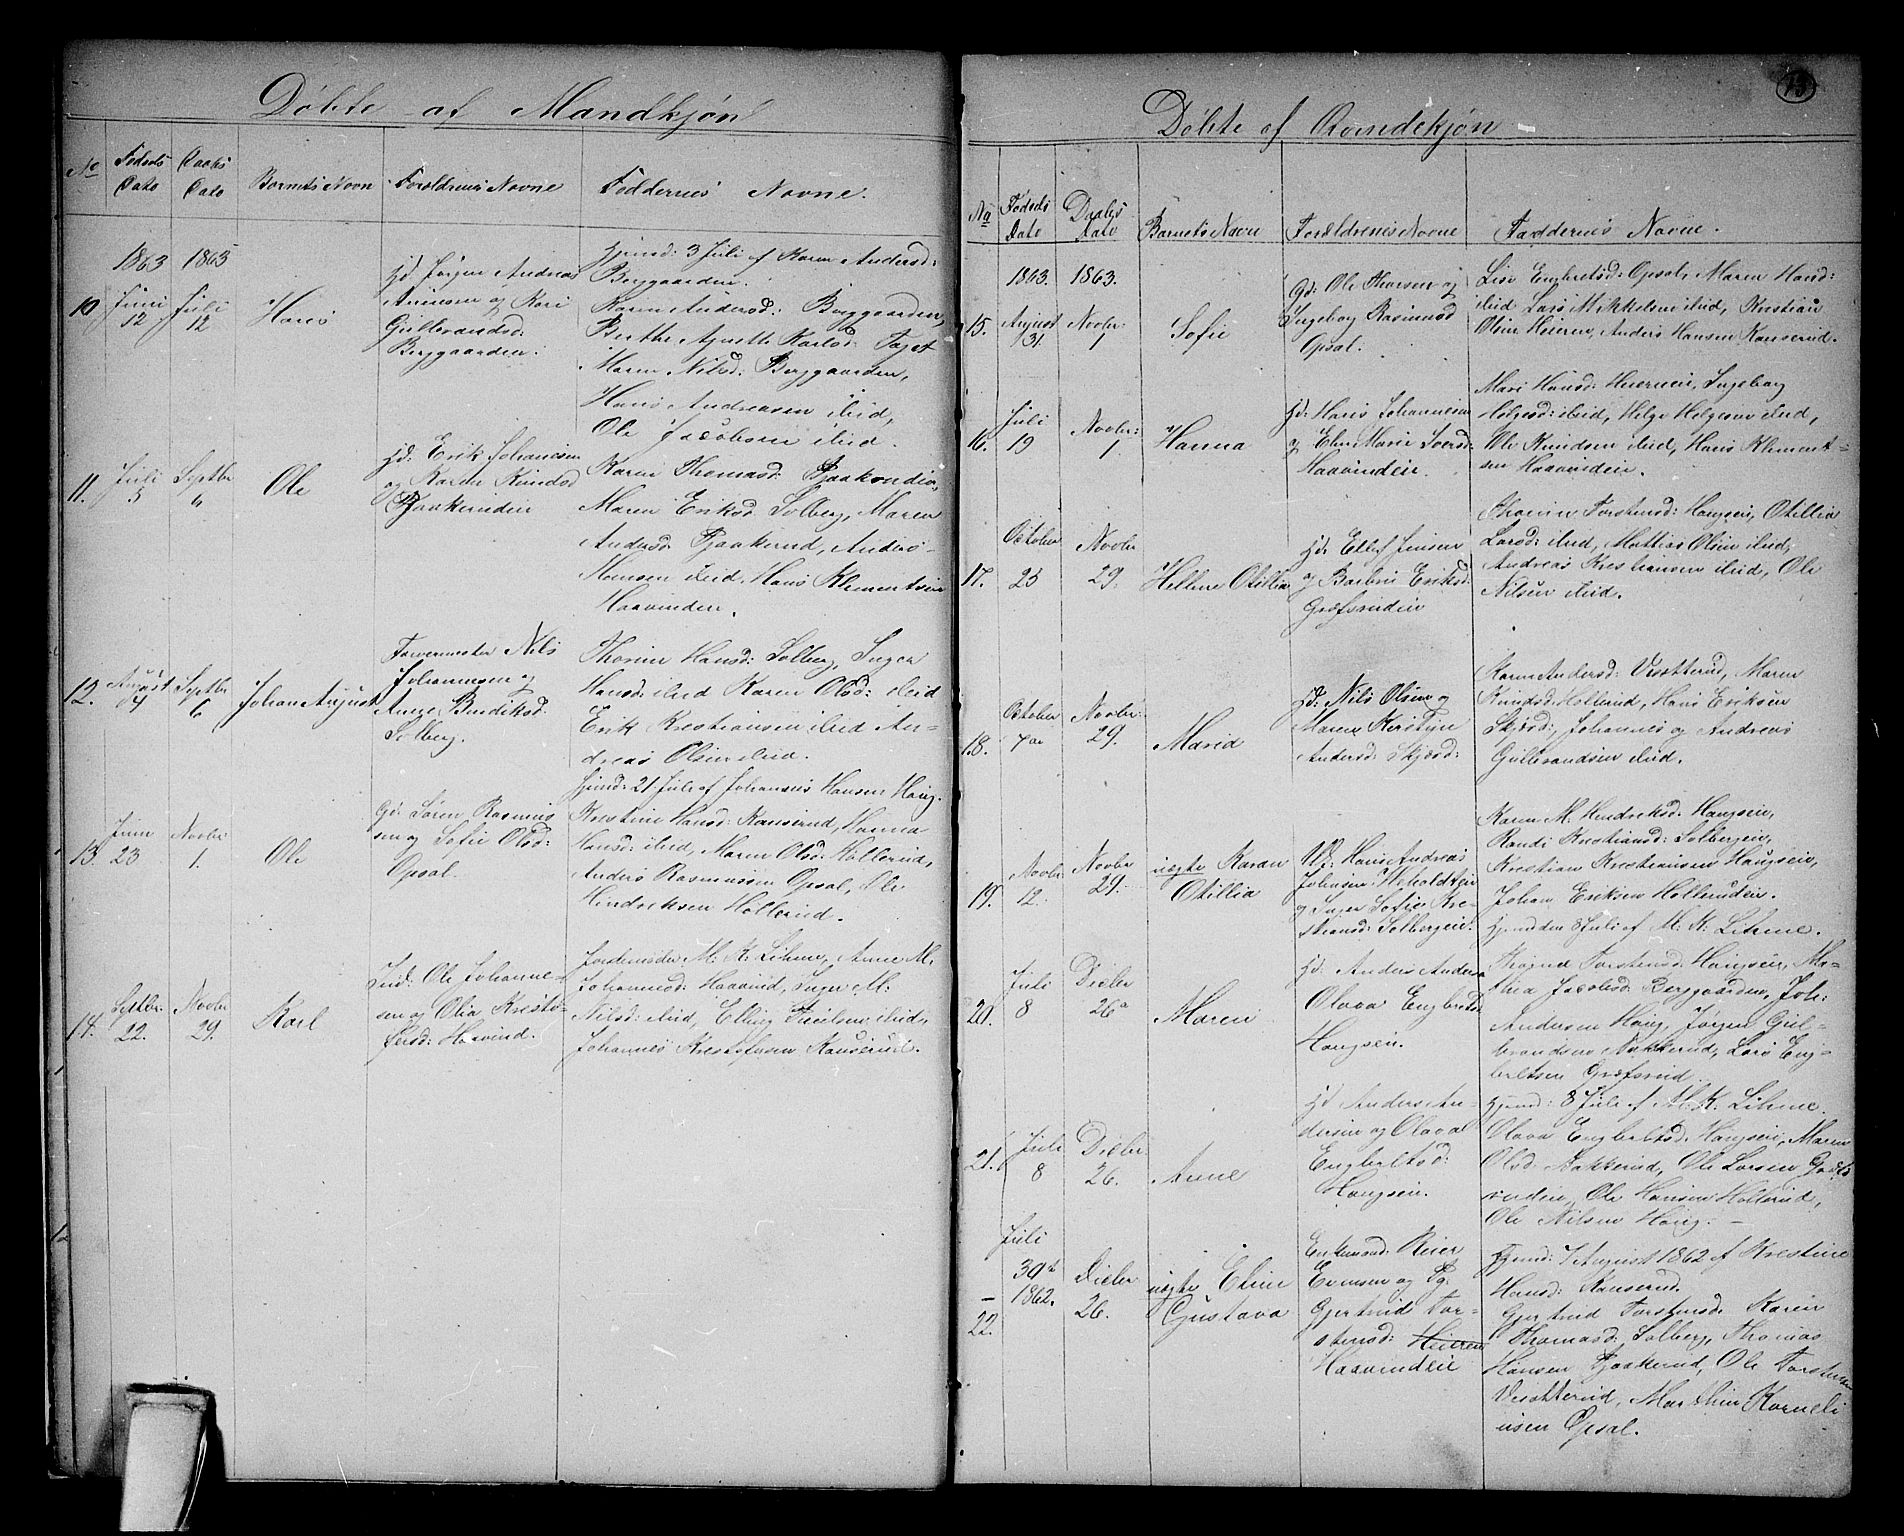 Døbte af Mandkjøn
No
Fødsels Dato
Daabs Dato
Barnets Navn
Forældrenes Navne
Faddernes Navne.
1863 1863
10 Juni 12
Juli 12
Hans
Gd. Jørgen Andreas
og Kari
Gulbrandsd:
Berggaarden.
Hjemd: 3 Juli af Karen Andersd:
Berggaarden.
Karen Andersd: Berggaarden,
Berthe Agnette Karlsd:
Maren Nilsd: Berggaarden,
Hans Andreasen ibid,
Ole Jacobsen ibid.
11. Juli 5
Septbr 6
Ole
Hd: Erik Johannesen
og Karen Knudsd
Karen Thomasd:
Maren Eriksd Solberg, Maren
Andersd Bjaakerud, Anders
Hansen ibid, Hans Klementsen
Haavindeie.
12. August 14
Septbr 6
Johan August
Farvermester Nils
Johannesen og
Anne Bendiksd:
Solberg.
Thorine Hansd: Solberg, Inger
Hansd: ibid Karen Olsd: ibid
Erik Kristiansen ibid An-
dreas Olsen ibid.
13. Juni 23
Novbr 1.
Ole
Gd: Søren Rasmus-
sen og Sofie Olsd:
Opsal.
Hjemd: 21 Juli af Johannes Hansen Haug.
Kristine Hansd: Kanserud, Hanna
Hansd: ibid, Maren Olsd: Hollerud,
Anders Rasmussen Opsal, Ole
Hendriksen Hollerud.
14. Septbr. 22.
Novbr 29.
Karl
Ind: Ole Johanne-
sen og Olia Kristo-
fersd: Haavind.
Jordemoder M: K: Lihme, Anne M.
Johannesd: Haavind, Inger M:
Nilsd: ibid, Elling Truelsen ibid,
Johannes Kristofersen Kanserud.
Døbte af Qvindekjøn
13
No
Fødsels Dato
Daabs Dato
Barnets Navn
Forældrenes Navne
Faddernes Navne.
1863. 1863.
15. August 31.
Novbr: 1
Sofie
Gd: Ole Thorsen og
Ingeborg Rasmusd
Opsal.
Lise Engbretsd: Opsal, Maren Hansd:
ibid Lars Mikkelsen ibid, Kristian
Olsen Heieren, Anders Hansen Kanserud.
16. Juli 19
Novbr: 1
Hanna
Hd: Hans Johannesen
og Elen Marie Iversd:
Haavindeie.
Mari Hansd: Ingeborg
Helgesd: ibid, Helge Helgesen ibid,
Ole Knudsen ibid, Hans Klement-
sen Haavindeie.
17. October 23
Novbr 29.
Hellene Otillia
Hd: Ellef Jensen
og Barbro Eriksd:
Græfsrudeie
Thorine Torstensd: Haugseie, Otillia
Larsd: ibid, Mathias Olsen ibid,
Andreas Kristiansen ibid, Ole
Nilsen ibid.
18. October 7de
Novbr: 29.
Marie
Hd: Nils Olsen og
Maren Kirstine
Andersd: Skjøsd:
Karen Andersd: Visætterud, Maren
Knudsd: Hollerud, Hans Eriksen
Skjøsd: Johannes og Andreas
Gulbrandsen ibid.
19. Novbr 12.
Novbr 29.
uægte Karen
Otillia
Uk: Hans Andreas
Johansen
og Inger Sofie Kri-
stiansd: Solbergeie.
Karen M: Hendriksd: Haugseie,
Randi Kristiansd: Solbergeie,
Kristian Kristiansen Haugseie,
Johan Eriksen Hollerudeie.
20. Juli 8
Decbr 26
Maren
Hd. Anders Anders.
Olava Engbretsd.
Haugseie.
Hjemd den 8 Juli af M: K: Lihme.
Torstensd: Haugseie, Ma-
thea Jacobsd: Berggaarden, Joh:
Andersen Haug, Jørgen Gul-
brandsen Nakkerud, Lars Eng-
bretsen Græfsrud.
21. Juli 8
Decbr 26.
Anne
Hd Anders An-
dersen og Olava
Engbretsd:
Haugseie.
Hjemd: 8 Juli af M: K: Lihme.
Olava Engbretsd: Haugseie, Maren
Olsd: Bakkerud, Ole Larsen Græfs-
rudeie, Ole Hansen Hollerud,
Ole Nilsen Haug. —
22. Juli 30te 1862.
Decbr 26.
uægte Eline
Gustava
Enkemand: Reier
Evensen og Pg:
Gjertrud Tor-
stensd: Heieren
Haavindeie
Hjemd: 7 August 1862 af Kristine
Hansd: Kanserud.
Gjertrud Torstensd: Karen
Thomasd: Solberg, Thomas
Hansen Bjaakerud, Ole Torstensen
Visætterud, Marthin Korneli-
usen Opsal.